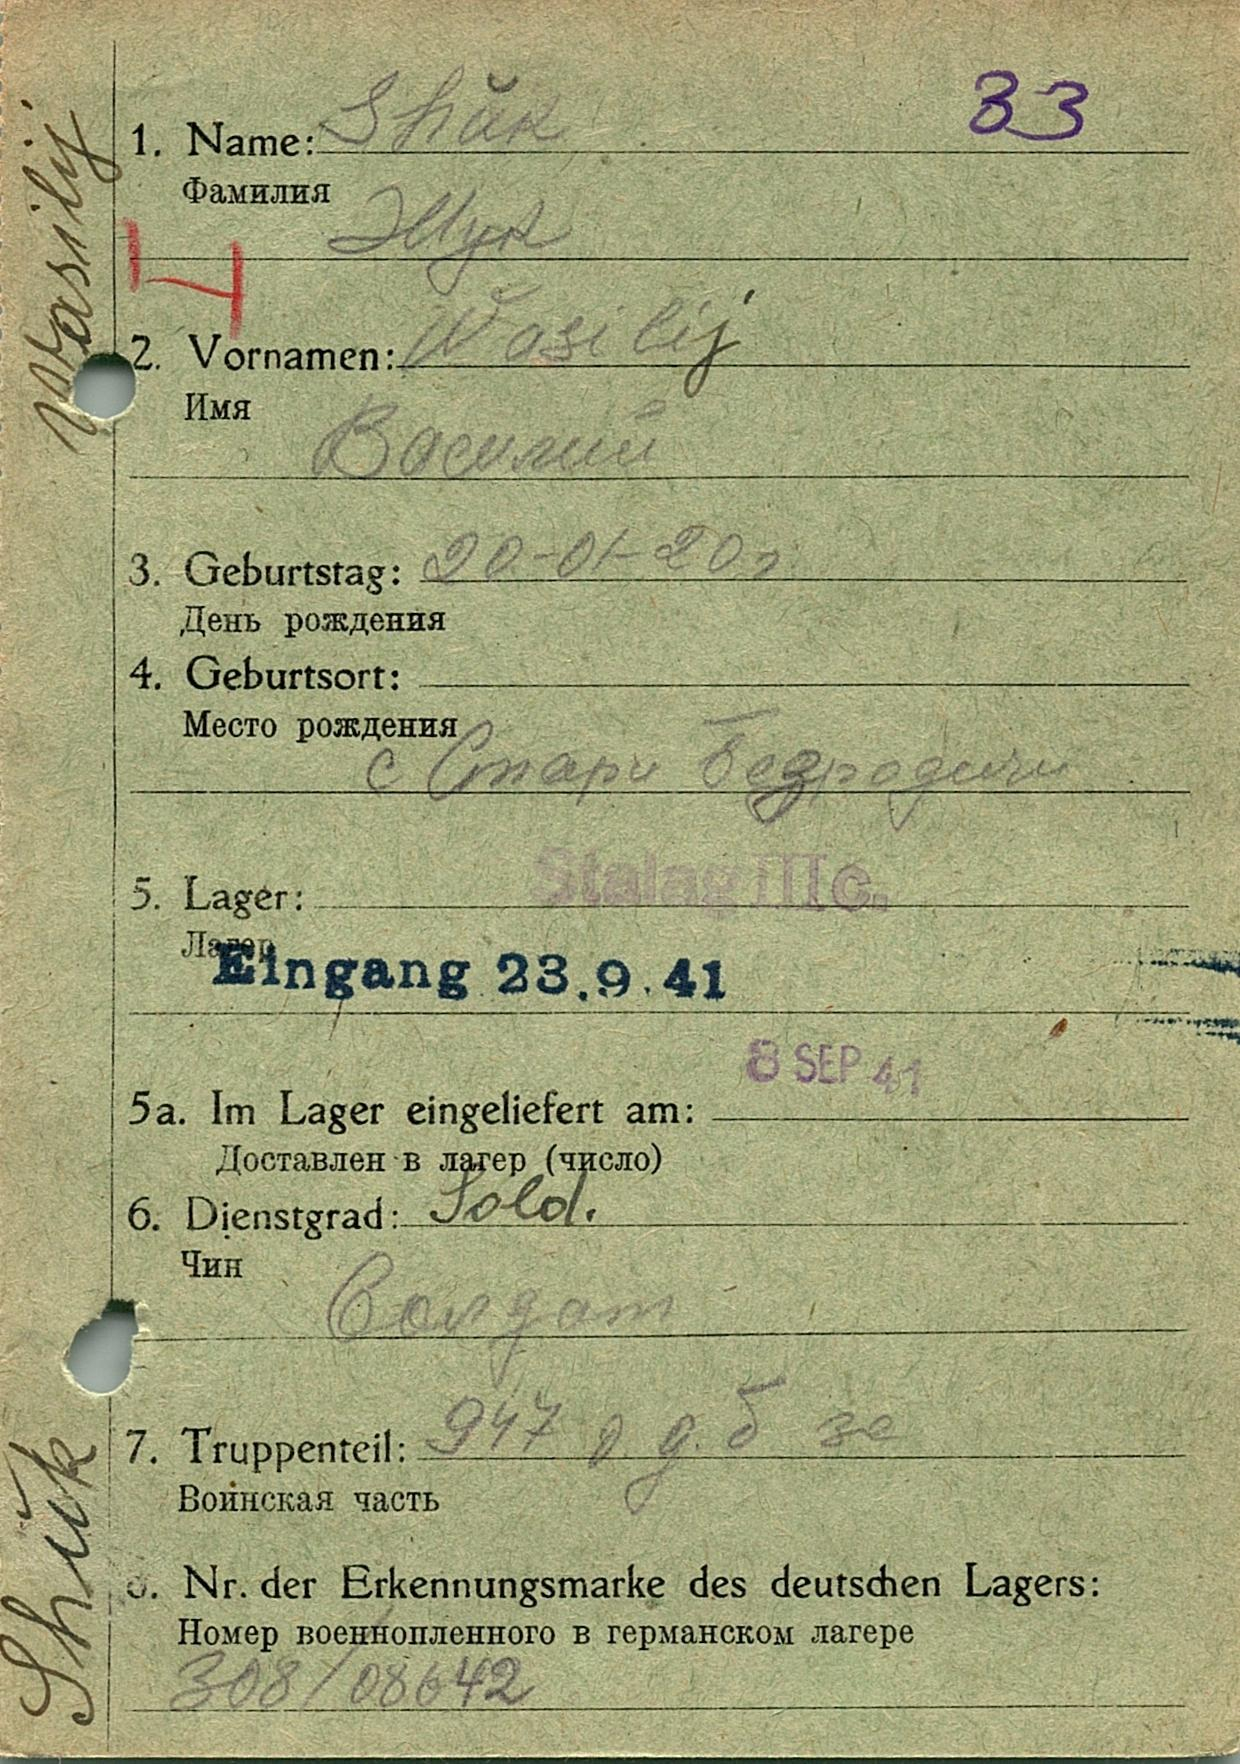 33
1. Name: Shŭk
Фамилия
Жук
2. Vornamen: Wasilij
Имя
Василий
3. Geburtstag: 20-01-20 г
День рождения
4. Geburtsort:
Место рождения
с Стари Бедродичи
5. Lager: Stalag IIIc.
Лагер
Eingang 23.9.41
8 SEP 41
5a. Im Lager eingeliefert am:
Доставлен в лагер (число)
6. Dienstgrad: Sold.
Чин
Солдат
7. Truppenteil: 947
Воинская часть
8. Nr. der Erkennungsmarke des deutschen Lagers:
Номер военнопленного в германском лагере
308/08642
Shŭk
Wasilij